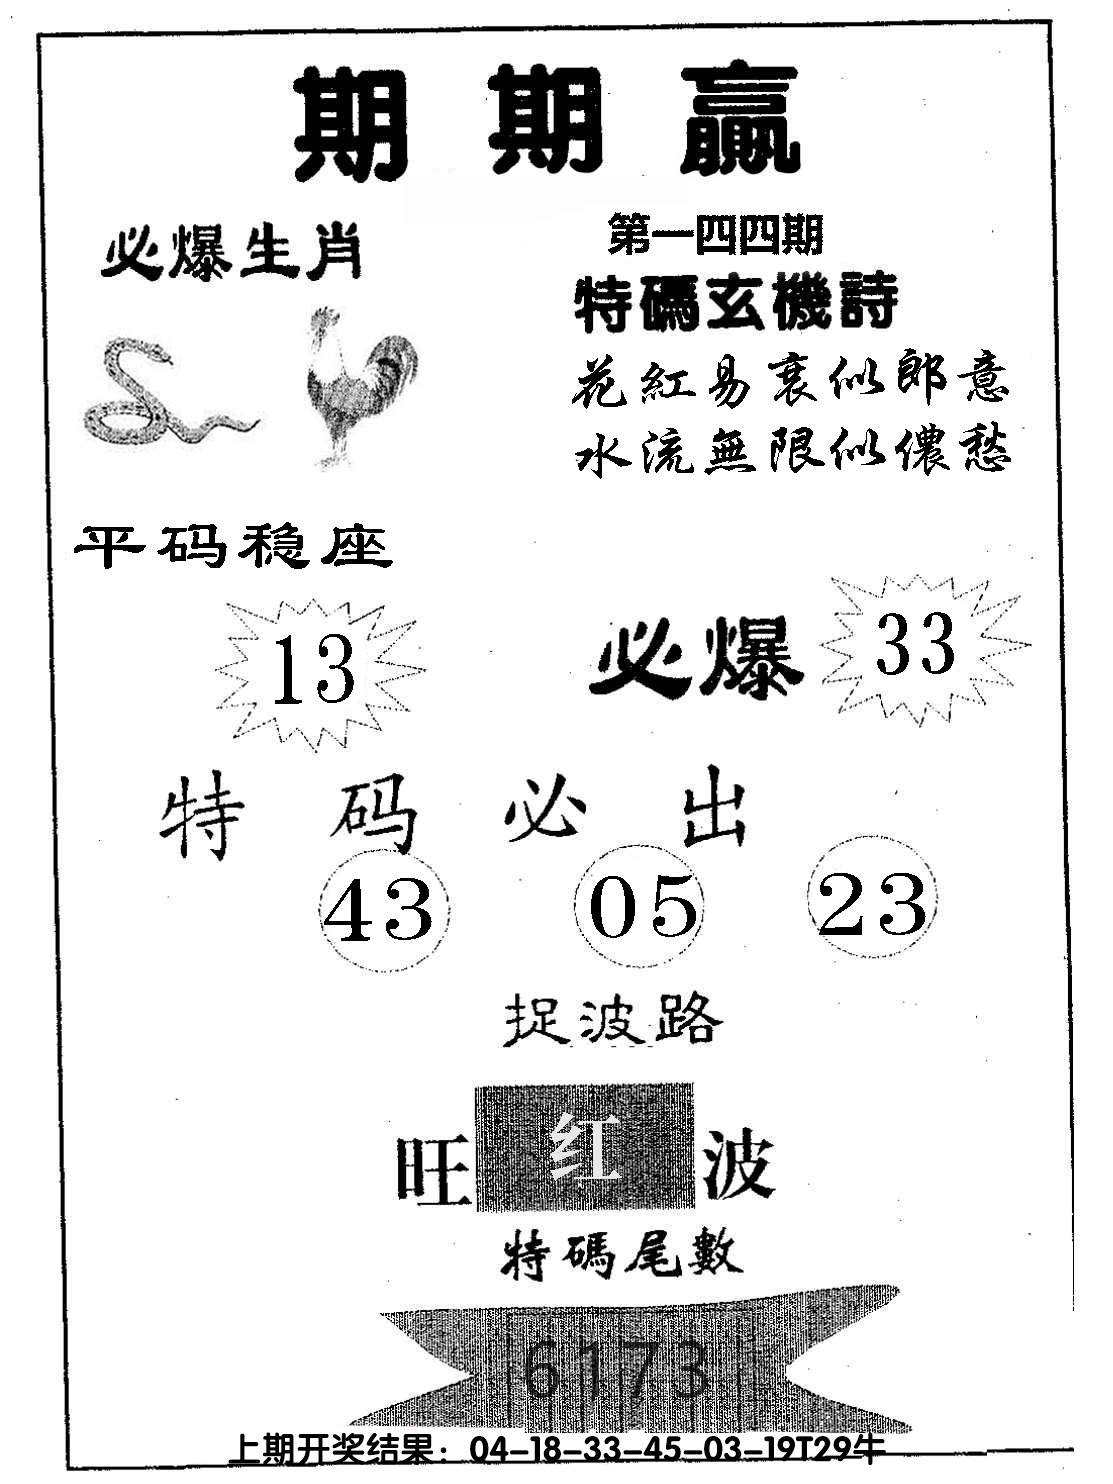 期期贏
必爆生肖
第一四四期
特碼玄機詩
花紅易衰似郎意
水流無限似儂愁
平码稳座
13
必爆
33
特码必出
43 05 23
捉波路
旺红波
特碼尾數
6173
上期开奖结果：04-18-33-45-03-19T29牛